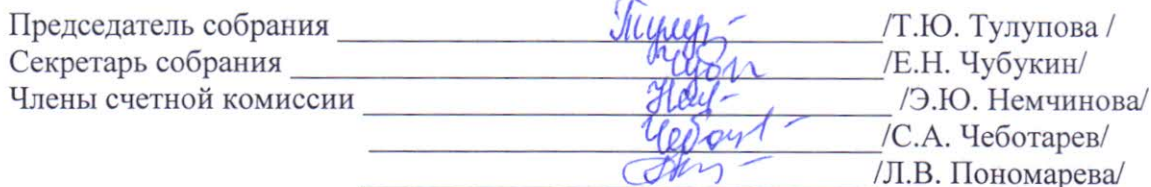 Председатель собрания /Т.Ю. Тулупова /
Секретарь собрания /Е.Н. Чубукин/
Члены счетной комиссии /Э.Ю. Немчинова/
/С.А. Чеботарев/
/Л.В. Пономарева/